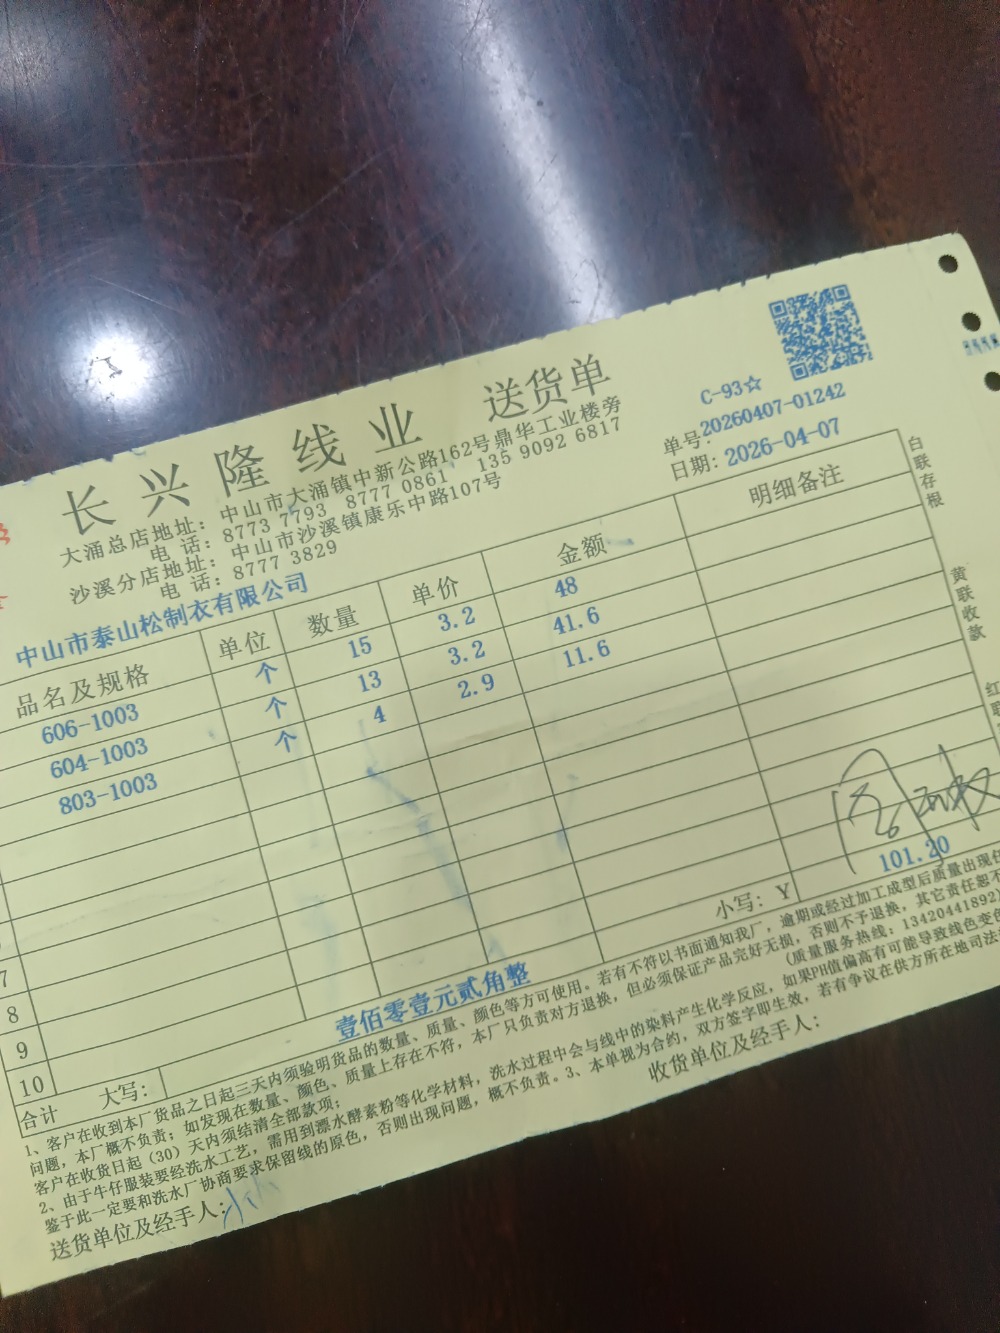 长兴隆线业 送货单
C-93☆
大涌总店地址：中山市大涌镇中新公路162号鼎华工业楼旁
电 话：8773 7793 8777 0861 135 9092 6817
沙溪分店地址：中山市沙溪镇康乐中路107号
电 话：8777 3829
单号：20260407-01242
日期：2026-04-07
中山市泰山松制衣有限公司
品名及规格 单位 数量 单价 金额 明细备注
606-1003 个 15 3.2 48
604-1003 个 13 3.2 41.6
803-1003 个 4 2.9 11.6
7
8
9
10
合计 大写： 壹佰零壹元贰角整 小写：Y 101.20
1、客户在收到本厂货品之日起三天内须验明货品的数量、质量、颜色等方可使用。若有不符以书面通知我厂，逾期或经过加工成型后质量出现任
问题，本厂概不负责；如发现在数量、颜色、质量上存在不符，本厂只负责对方退换，但必须保证产品完好无损，否则不予退换，其它责任恕不
客户在收货日起（30）天内须结清全部款项；（质量服务热线：13420441892）
2、由于牛仔服装要经洗水工艺，需用到漂水酵素粉等化学材料，洗水过程中会与线中的染料产生化学反应，如果PH值偏高有可能导致线色变色
鉴于此一定要和洗水厂协商要求保留线的原色，否则出现问题，概不负责。3、本单视为合约，双方签字即生效，若有争议在供方所在地司法
送货单位及经手人： 收货单位及经手人：
白联存根
黄联收款
红联